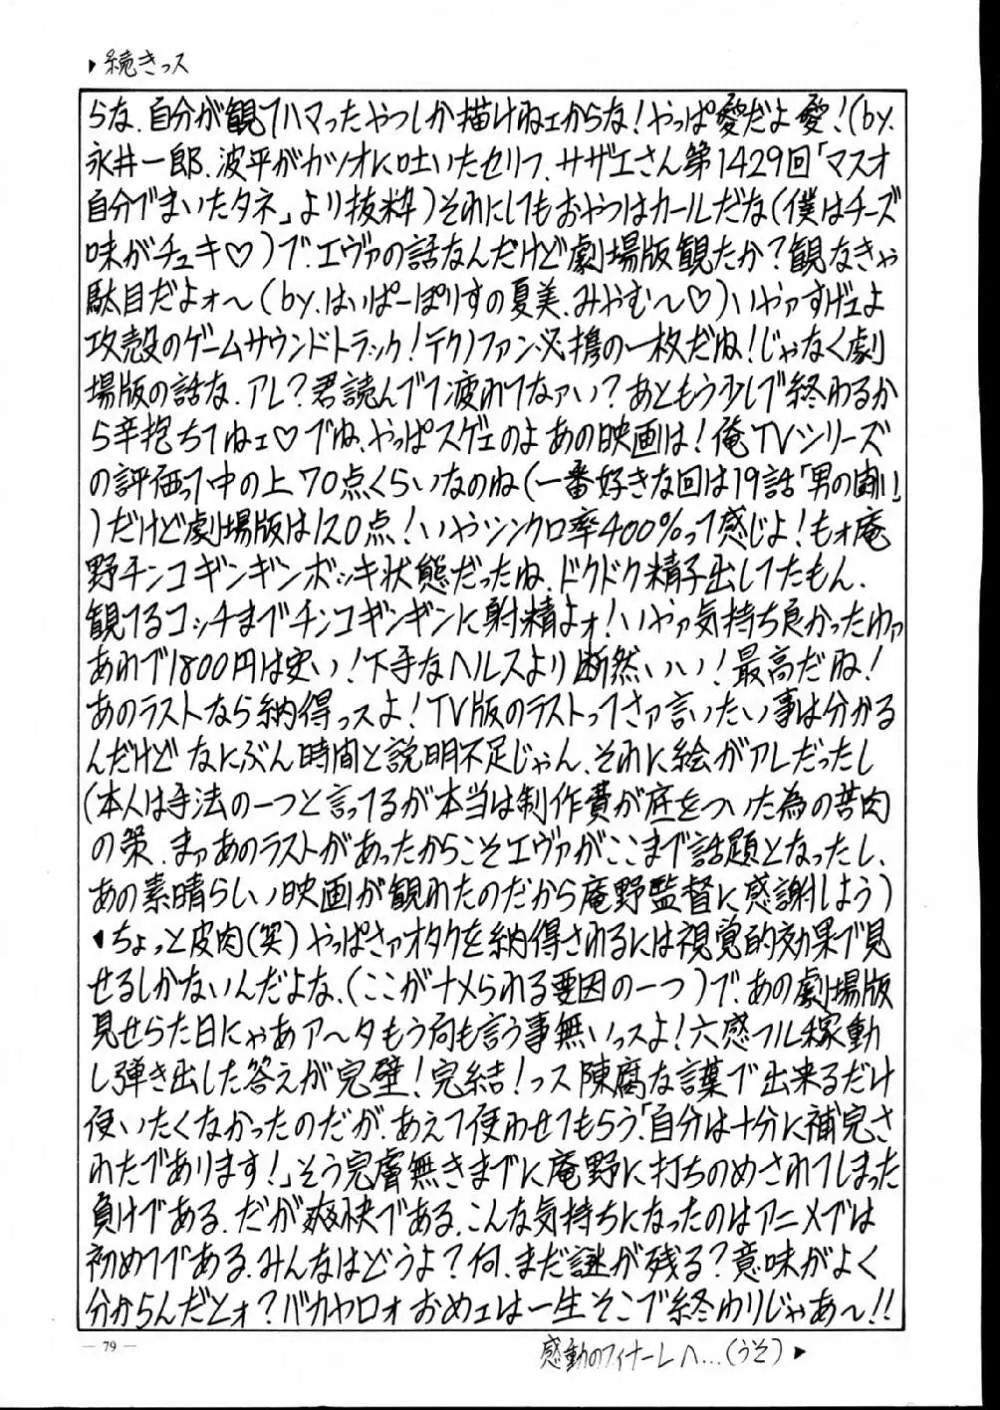 ▶続きっス
らな、自分が観てハマったやつしか描けねェからな！やっぱ愛だよ愛！（by.
永井一郎、波平がカツオに吐いたセリフ、サザエさん第1429回「マスオ
自分でまいたタネ」より抜粋）それにしてもおやつはカールだな（僕はチーズ
味がチュキ♡）で、エヴァの話なんだけど劇場版観たか？観なきゃ
駄目だよォ〜（by.はいぱーぽりすの夏美、みやむ〜♡）いやァすげェよ
攻殻のゲームサウンドトラック！テクノファン必携の一枚だね！じゃなく劇
場版の話な、アレ？君読んでて疲れてなァい？あともう少しで終わるか
ら辛抱ちてねェ♡でね、やっぱスゲェのよあの映画は！俺TVシリーズ
の評価って中の上70点くらいなのね（一番好きな回は19話「男の闘い」
）だけど劇場版は120点！いやシンクロ率400%って感じよ！もォ庵
野チンコギンギンボッキ状態だったね、ドクドク精子出してたもん、
観てるコッチまでチンコギンギンに射精よォ！いやァ気持ち良かったゆァ
あれで1800円は安い！下手なヘルスより断然いい！最高だね！
あのラストなら納得っスよ！TV版のラストってさァ言いたい事は分かる
んだけどなにぶん時間と説明不足じゃん、それに絵がアレだったし
（本人は手法の一つと言ってるが本当は制作費が底をついた為の苦肉
の策、まァあのラストがあったからこそエヴァがここまで話題となったし、
あの素晴らしい映画が観れたのだから庵野監督に感謝しよう）
◀ちょっと皮肉（笑）やっぱさァオタクを納得されるには視覚的効果で見
せるしかないんだよな、（ここがナメられる要因の一つ）で、あの劇場版
見せらた日にゃあア〜タもう何も言う事無いっスよ！六感フル稼動
し弾き出した答えが完璧！完結！っス陳腐な言葉で出来るだけ
使いたくなかったのだが、あえて使わせてもらう、「自分は十分に補完さ
れたであります！」そう完膚無きまでに庵野に打ちのめされてしまった
負けである、だが爽快である、こんな気持ちになったのはアニメでは
初めてである、みんなはどうよ？何、まだ謎が残る？意味がよく
分からんだとォ？バカヤロォおめェは一生そこで終わりじゃあ〜!!
— 79 —
感動のフィナーレへ…（うそ）▶